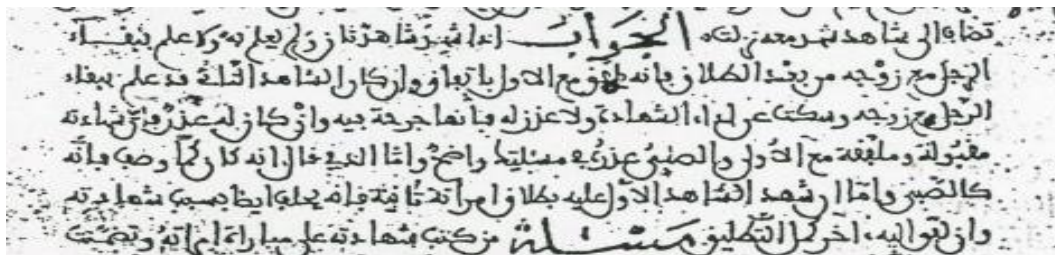 قضاء الى شاهد شهد معه بذلك الجواب اذا شهد شاهد ثان ولم يعلم به ولا علم ببقاء
الرجل مع زوجه من بعد الطلاق فانه يلفق مع الاول باتفاق وان كان الشاهد الثاني قد علم ببقاء
الرجل مع زوجه وسكت عن اداء الشهادة ولا عذر له فانها جرحة فيه وان كان له عذر فان شهادته
مقبولة وملفقة مع الاول والصبي عذر في مسئلتنا واضح واما الذي قال انه كان وصب فانه
كالصبي واما ان شهد الشاهد الاول عليه بطلاق امراته ثانية فانه يحلف ايضا بسبب شهادته
وان لقواليه اخر كمل التطليق مسئلة من كتب شهادته على مباراة امراته وتضمنت